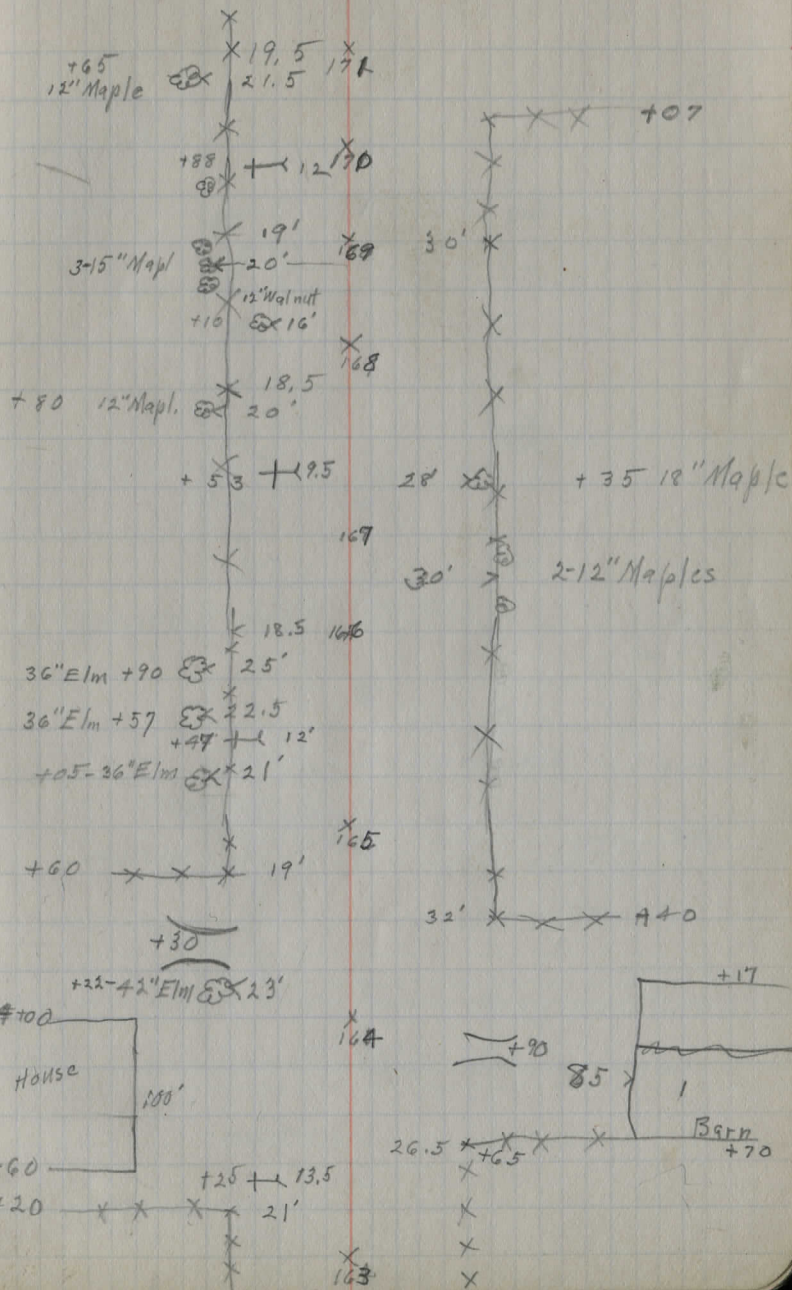 19,5
171
+65
12" Maple 21.5
+07
+88 12 170
19' 30' 169
3-15" Mapl 20'
12" Walnut
+10 16'
168
18,5
+80 12" Mapl. 20'
+53 9.5 28' +35 18" Maple
167
30' 2-12" Maples
18.5 166
36" Elm +90 25'
36" Elm +57 22.5
+47 12'
+05-36" Elm 21'
165
+60 19'
32' +40
+30
+22-42" Elm 23' +17
+00
164
+90
House 85 1
100'
Barn
26.5 +65 +70
60
+25 13.5
20 21'
163